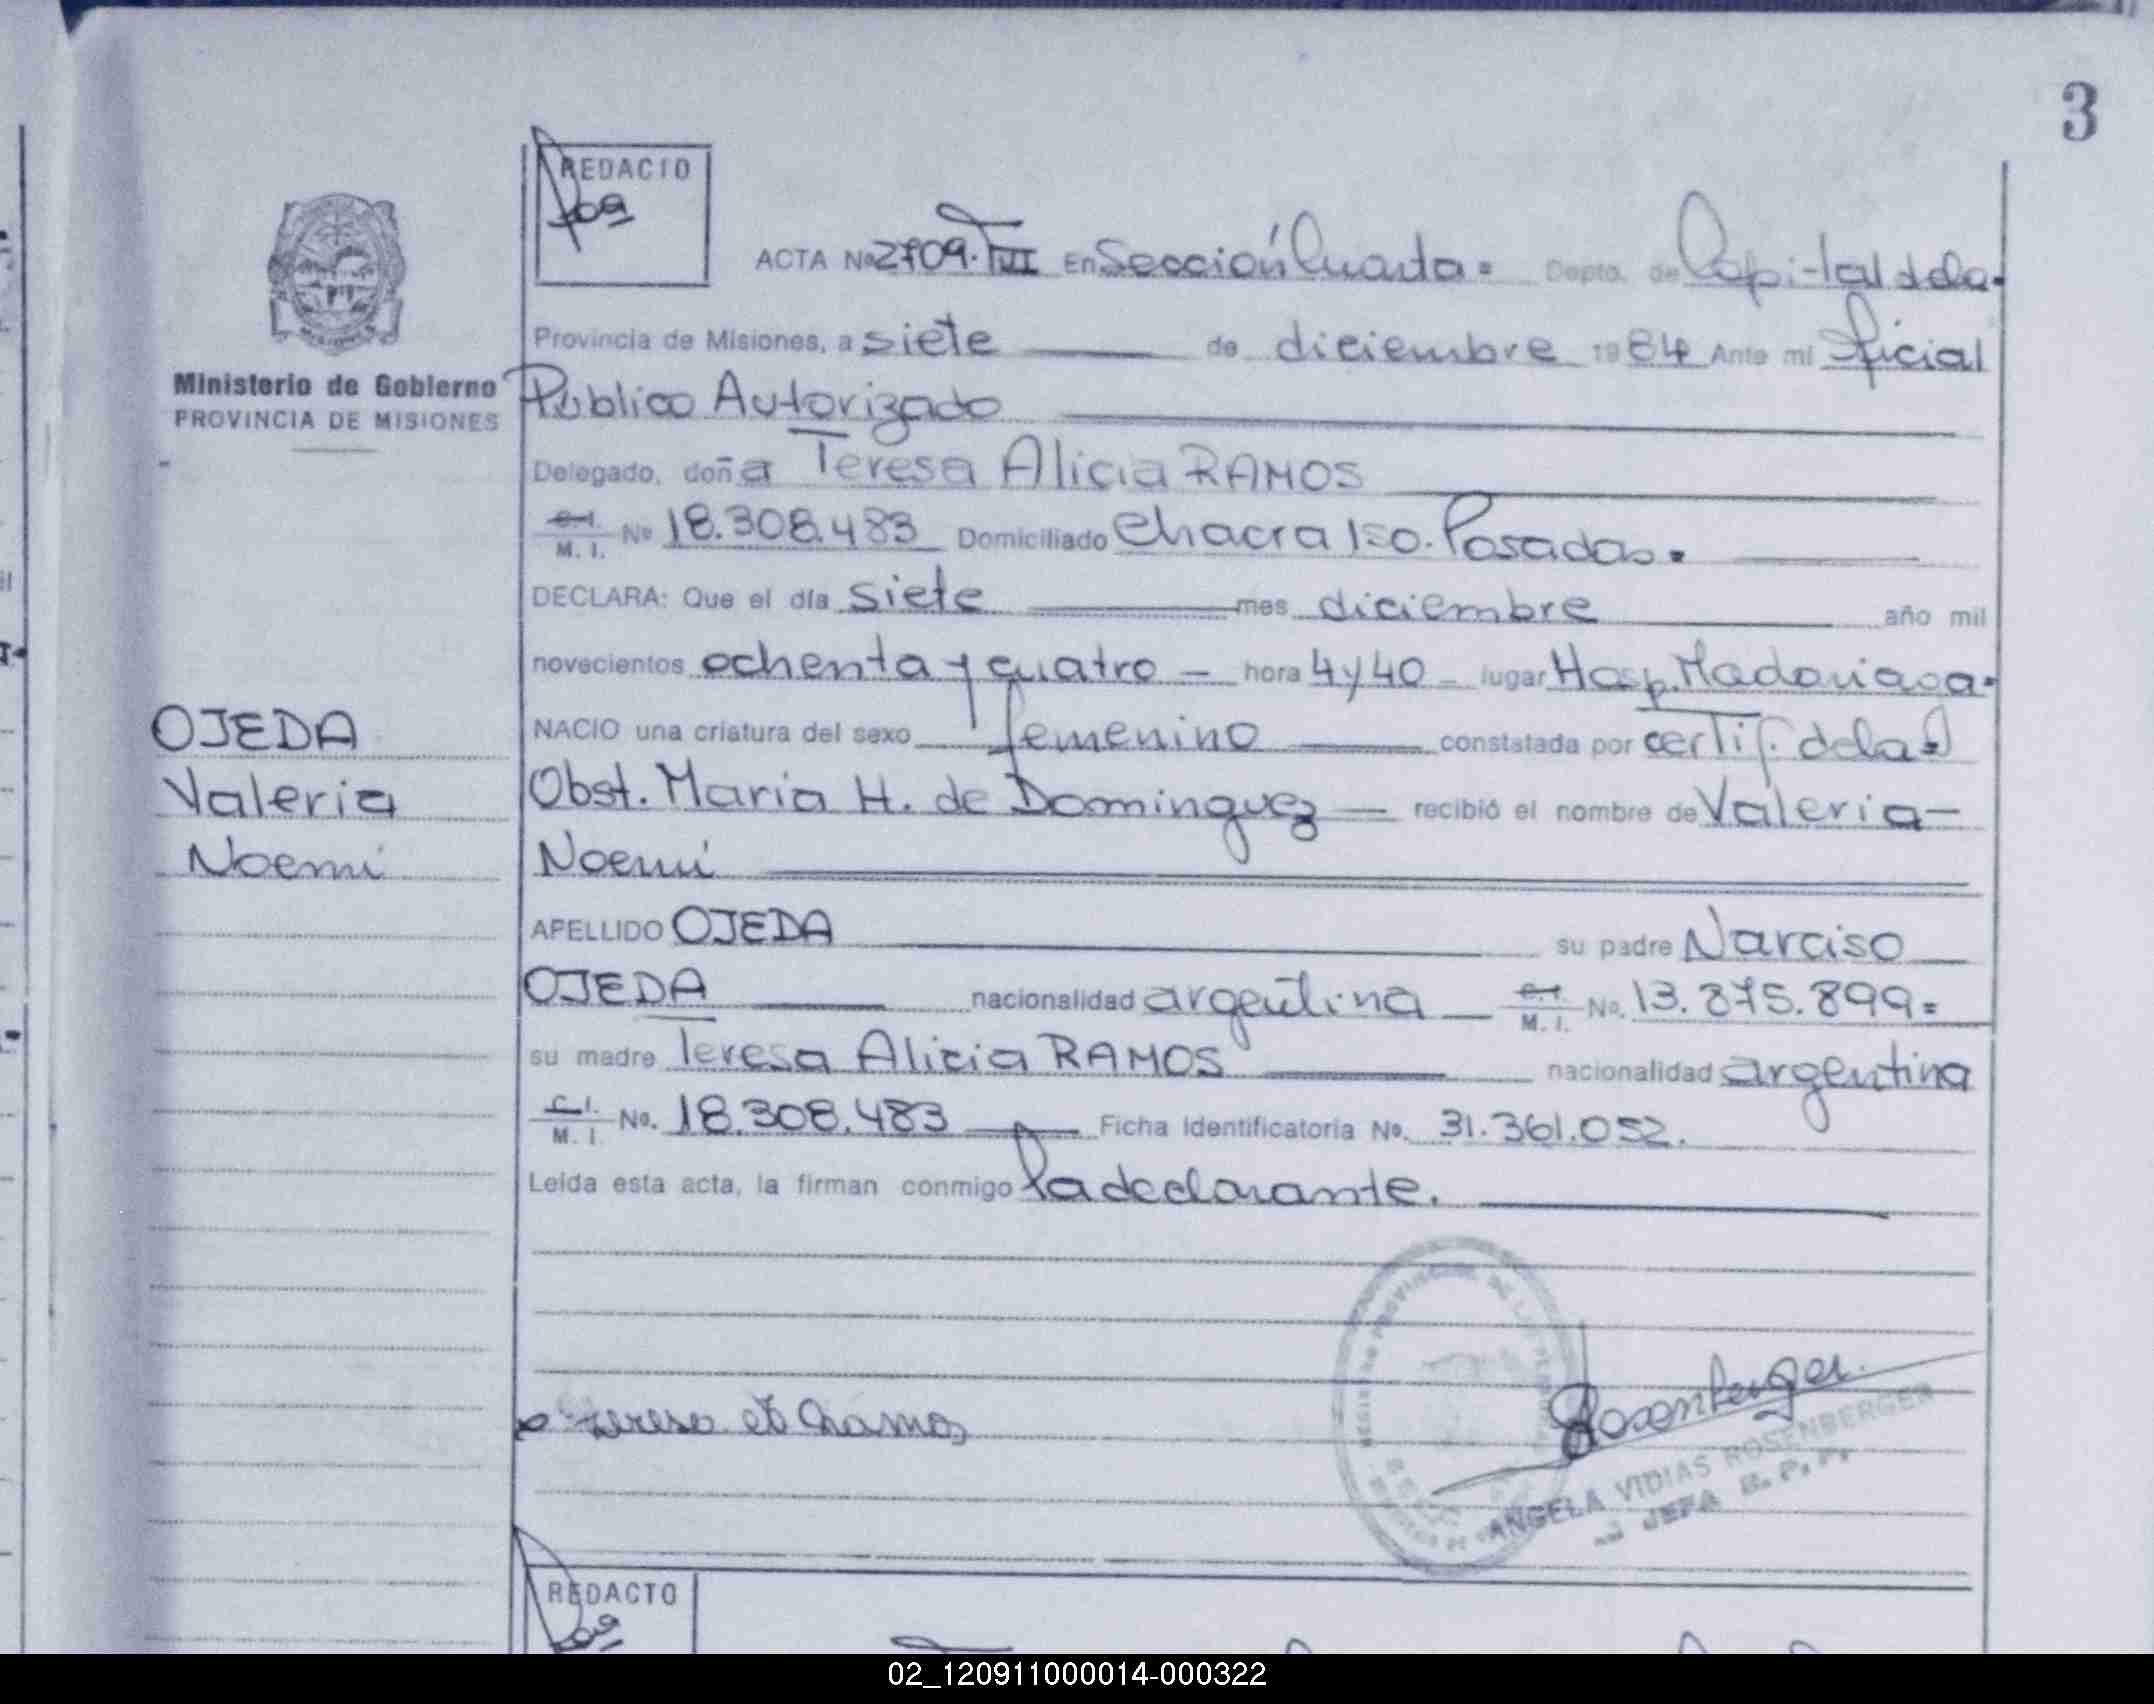 3
REDACTO
ACTA Nº 2709. T VII En Sección Cuarta= Depto. de Capital de la-
Provincia de Misiones, a siete de diciembre 1984 Ante mi Oficial
Ministerio de Gobierno
PROVINCIA DE MISIONES
Público Autorizado
Delegado, doña Teresa Alicia RAMOS
C.I. M. I. Nº 18.308.483 Domiciliado Chacra 150. Posadas.
DECLARA: Que el día siete mes diciembre año mil
novecientos ochenta y cuatro — hora 4 y 40 — lugar Hosp. Madariaga.
OJEDA
Valeria
Noemi
NACIO una criatura del sexo femenino constatada por certif. de la
Obst. Maria H. de Dominguez — recibió el nombre de Valeria—
Noemi
APELLIDO OJEDA su padre Narciso
OJEDA nacionalidad argentina — C.I. M. I. No. 13.875.899=
su madre Teresa Alicia RAMOS nacionalidad argentina
C.I. M. I. No. 18.308.483 Ficha Identificatoria No. 31.361.052.
Leída esta acta, la firman conmigo la declarante.
Teresa A Ramos
Rosenberger
ANGELA VIDIAS ROSENBERGER
JEFA R.P.P.
REDACTO
02_120911000014-000322